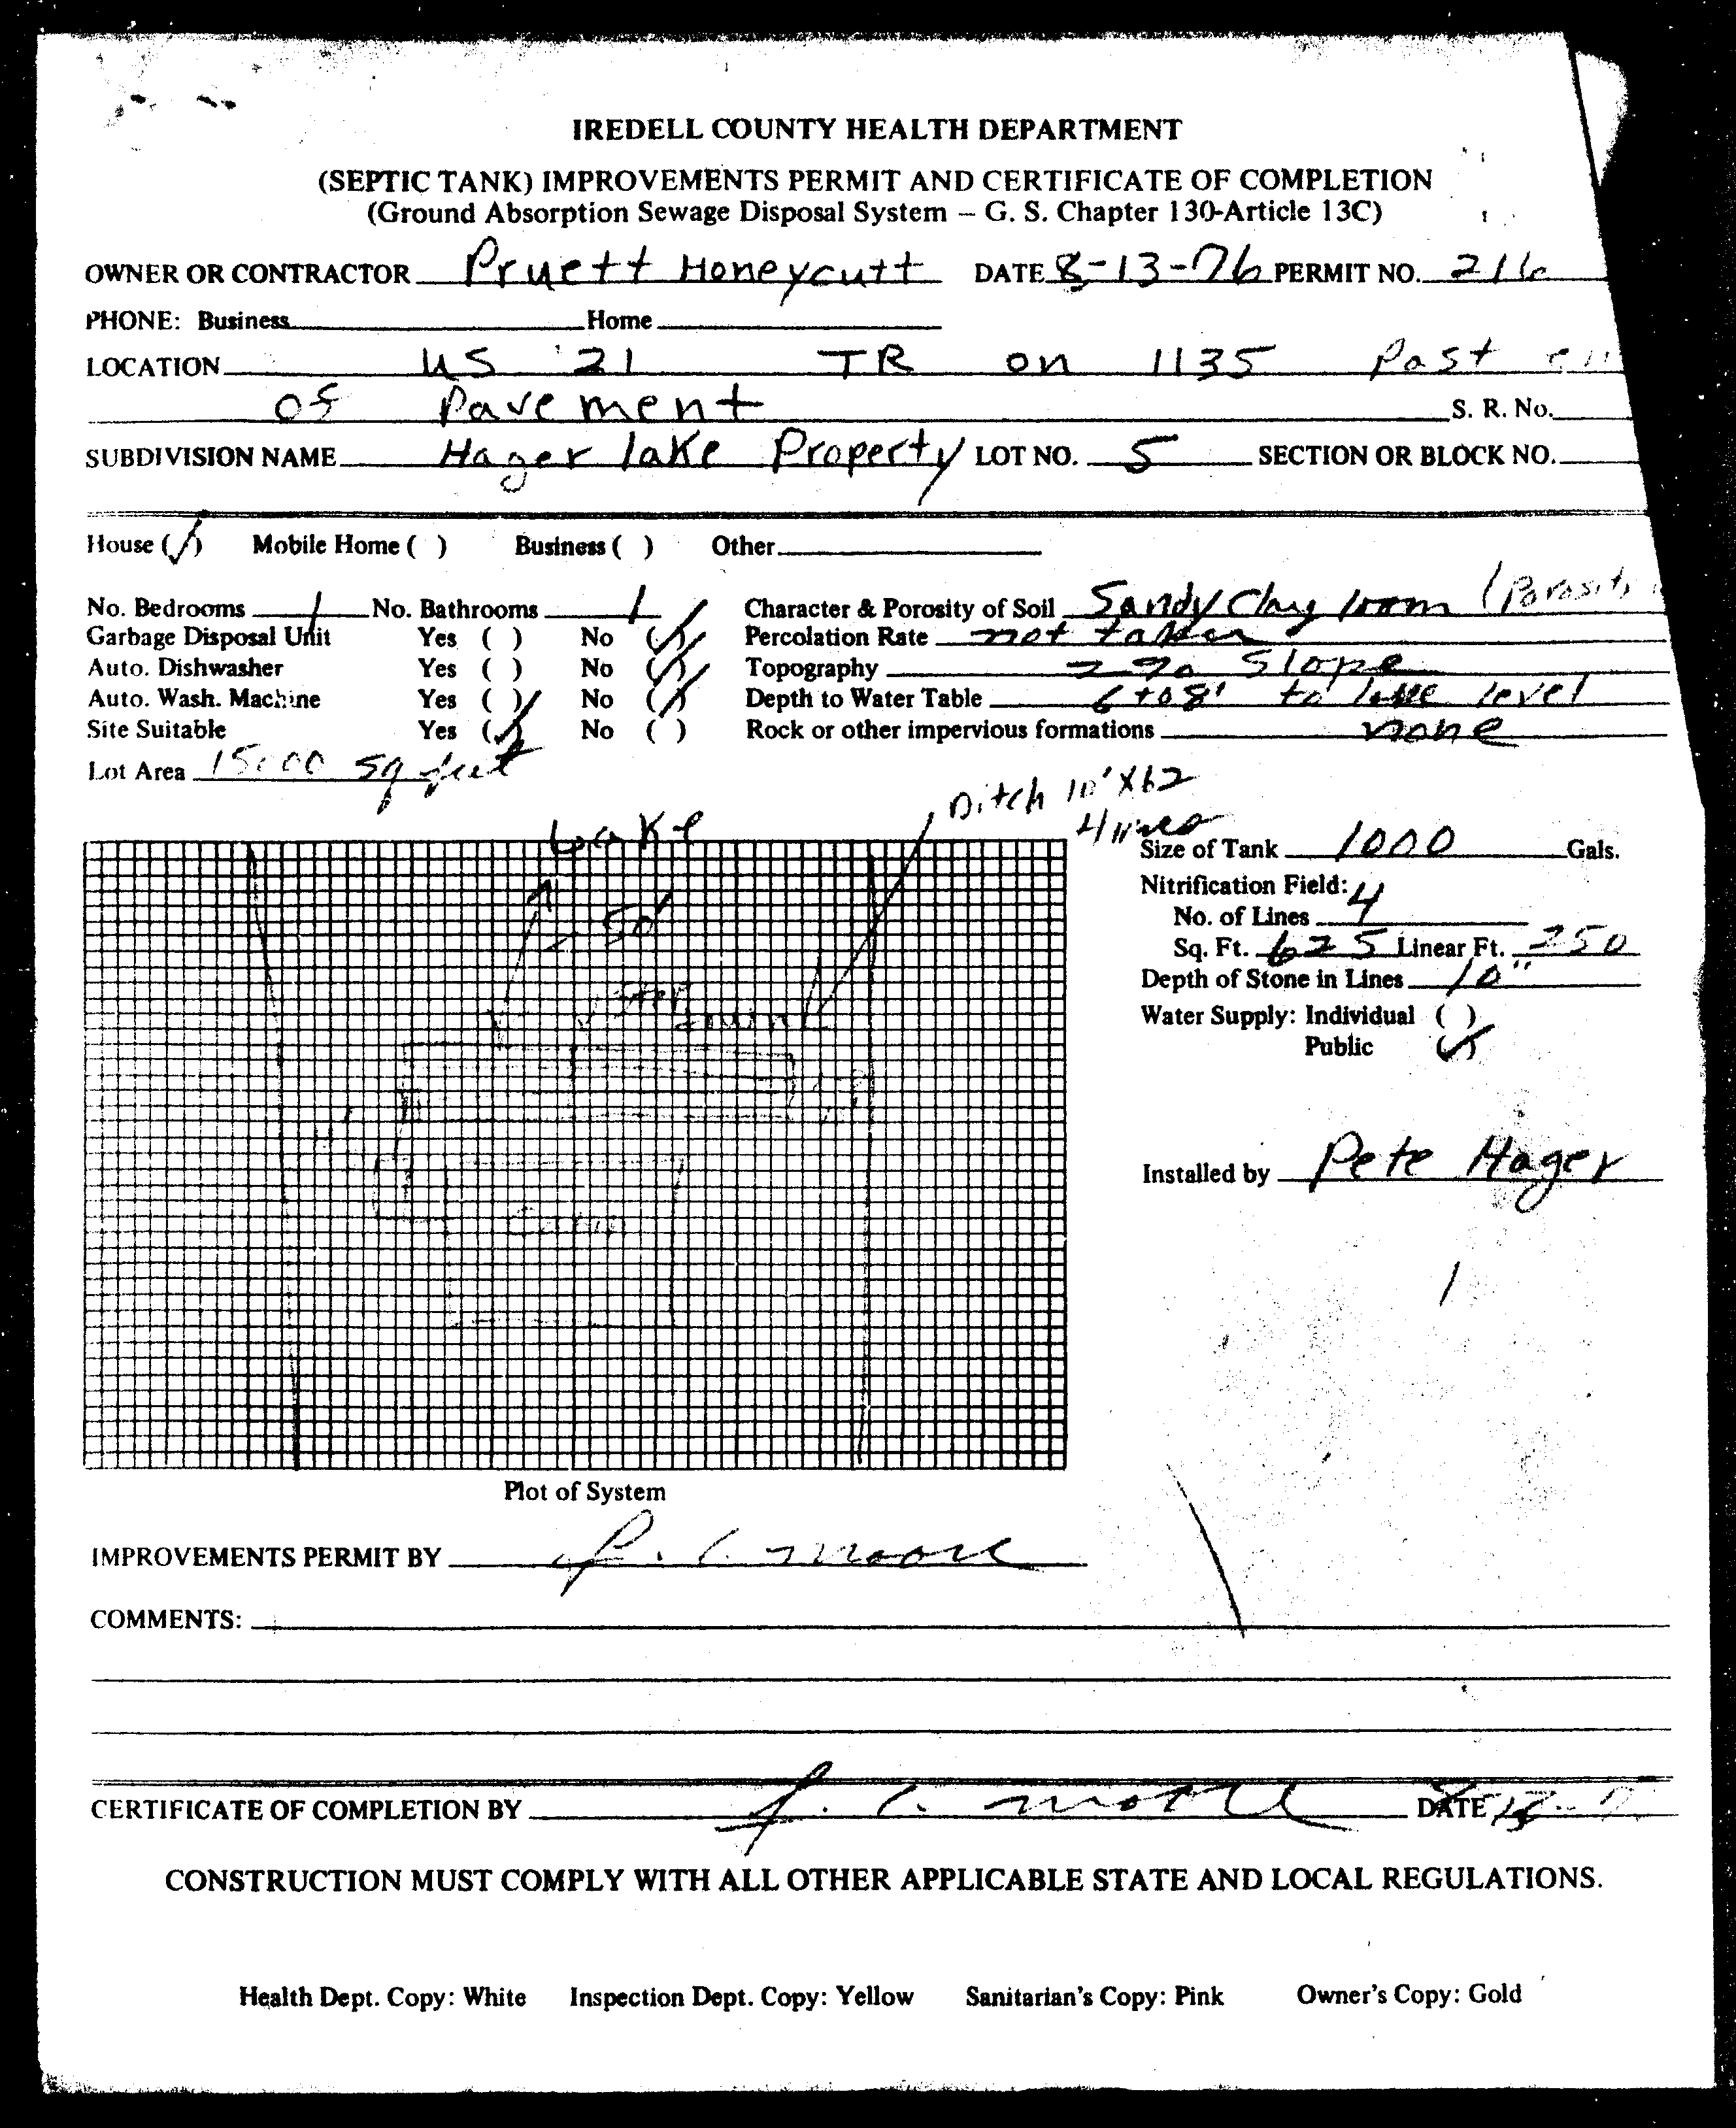 IREDELL COUNTY HEALTH DEPARTMENT
(SEPTIC TANK) IMPROVEMENTS PERMIT AND CERTIFICATE OF COMPLETION
(Ground Absorption Sewage Disposal System – G. S. Chapter 130-Article 13C)
OWNER OR CONTRACTOR Pruett Honeycutt DATE 8-13-76 PERMIT NO. 216
PHONE: Business Home
LOCATION US 21 TR on 1135 Past
of Pavement S. R. No.
SUBDIVISION NAME Hager lake Property LOT NO. 5 SECTION OR BLOCK NO.
House (✓) Mobile Home ( ) Business ( ) Other
No. Bedrooms 1 No. Bathrooms 1 Character & Porosity of Soil Sandy Clay loom (Porosity
Garbage Disposal Unit Yes ( ) No (✓) Percolation Rate not taken
Auto. Dishwasher Yes ( ) No (✓) Topography 2% Slope
Auto. Wash. Machine Yes ( ) No (✓) Depth to Water Table 6 to 8' to lake level
Site Suitable Yes (✓) No ( ) Rock or other impervious formations none
Lot Area 15000 sq feet
Ditch 10' X 62
4 lines
Lake
Size of Tank 1000 Gals.
Nitrification Field:
No. of Lines 4
50'
Sq. Ft. 625 Linear Ft. 250
Depth of Stone in Lines 10"
Water Supply: Individual ( )
Public (✓)
Installed by Pete Hager
Plot of System
IMPROVEMENTS PERMIT BY moore
COMMENTS:
CERTIFICATE OF COMPLETION BY moore DATE
CONSTRUCTION MUST COMPLY WITH ALL OTHER APPLICABLE STATE AND LOCAL REGULATIONS.
Health Dept. Copy: White Inspection Dept. Copy: Yellow Sanitarian's Copy: Pink Owner's Copy: Gold